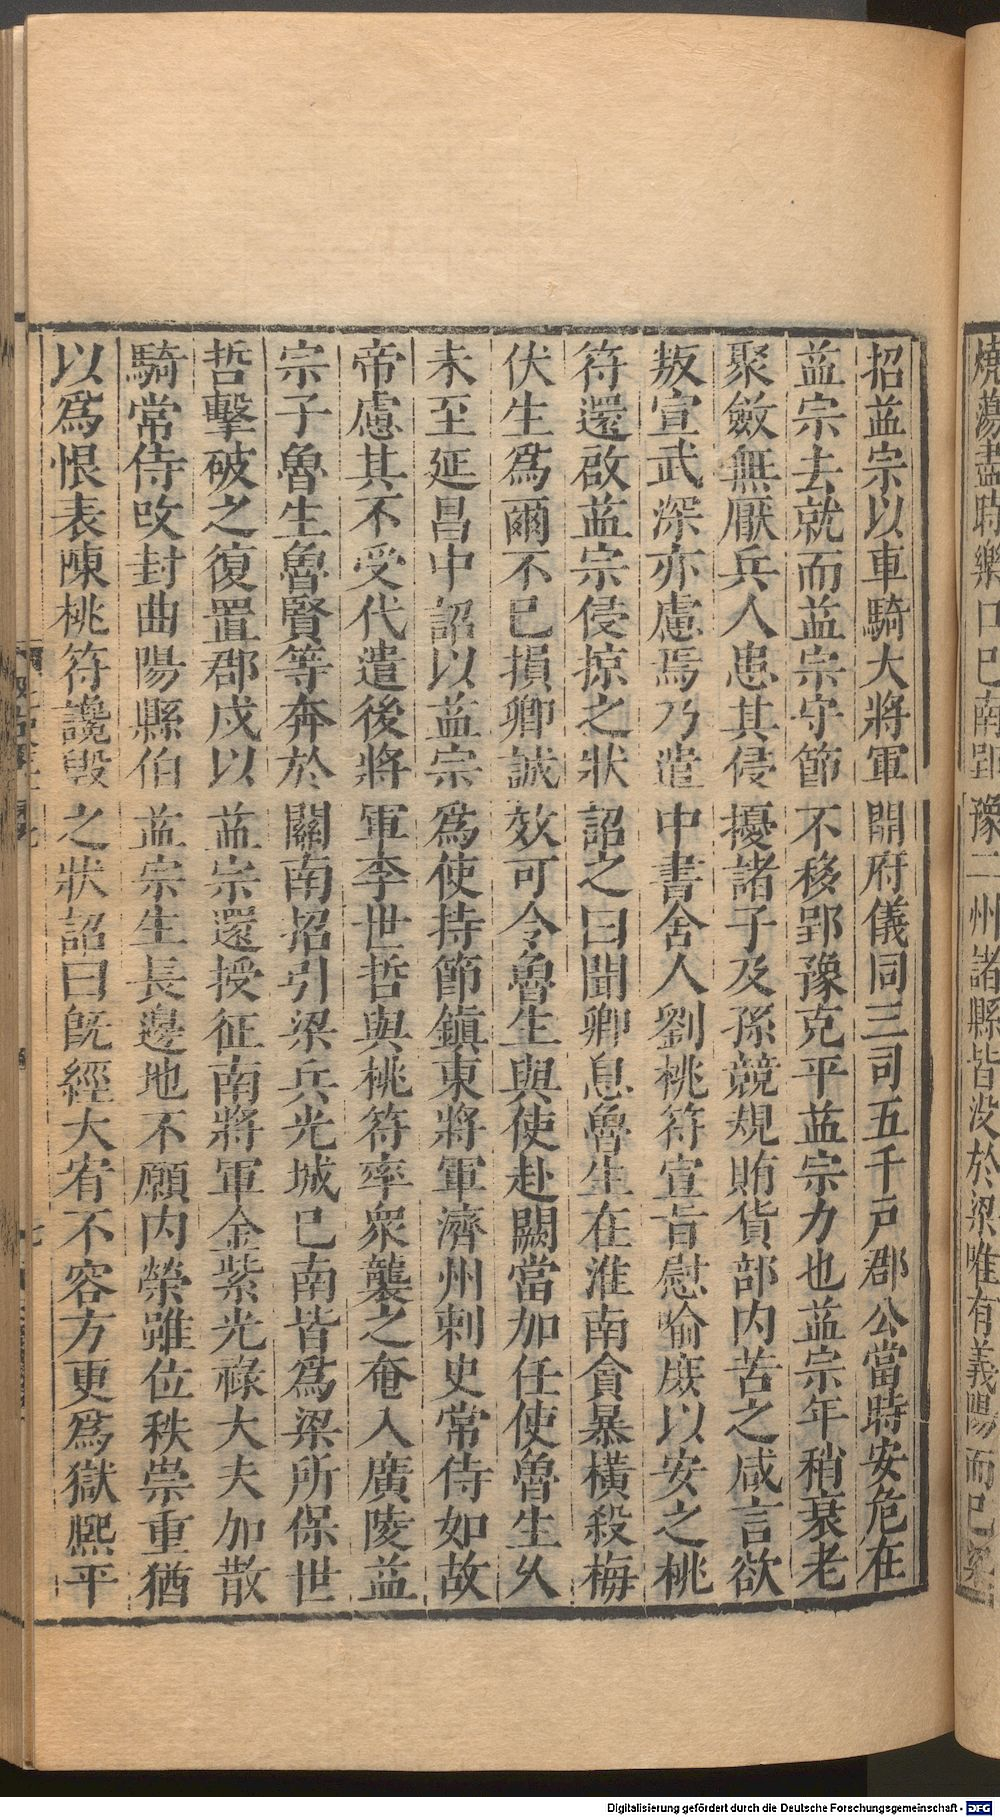 燒蕩盡時樂口巳南郢豫二州諸縣皆没於梁唯有義陽而巳
招益宗以車騎大將軍開府儀同三司五千戸郡公當時安危在
益宗去就而益宗守節不移郢豫克平益宗力也益宗年稍衰老
聚斂無厭兵人患其侵擾諸子及孫競規賄貨部内苦之咸言欲
叛宣武深亦慮焉乃遣中書舍人劉桃符宣旨慰喻庻以安之桃
符還啟益宗侵掠之狀詔之曰聞卿息魯生在淮南貪暴橫殺梅
伏生爲爾不巳損卿誠效可令魯生與使赴闕當加任使魯生乆
未至延昌中詔以益宗爲使持節鎮東將軍濟州刺史常侍如故
帝慮其不受代遣後將軍李世哲與桃符率衆襲之奄入廣陵益
宗子魯生魯賢等奔於關南招引梁兵光城巳南皆爲梁所保世
哲擊破之復置郡戍以益宗還授征南將軍金紫光祿大夫加散
騎常侍攺封曲陽縣伯益宗生長邊地不願内榮雖位秩崇重猶
以爲恨表陳桃符讒毀之狀詔曰旣經大宥不容方更爲獄熙平
七
Digitalisierung gefördert durch die Deutsche Forschungsgemeinschaft - DFG